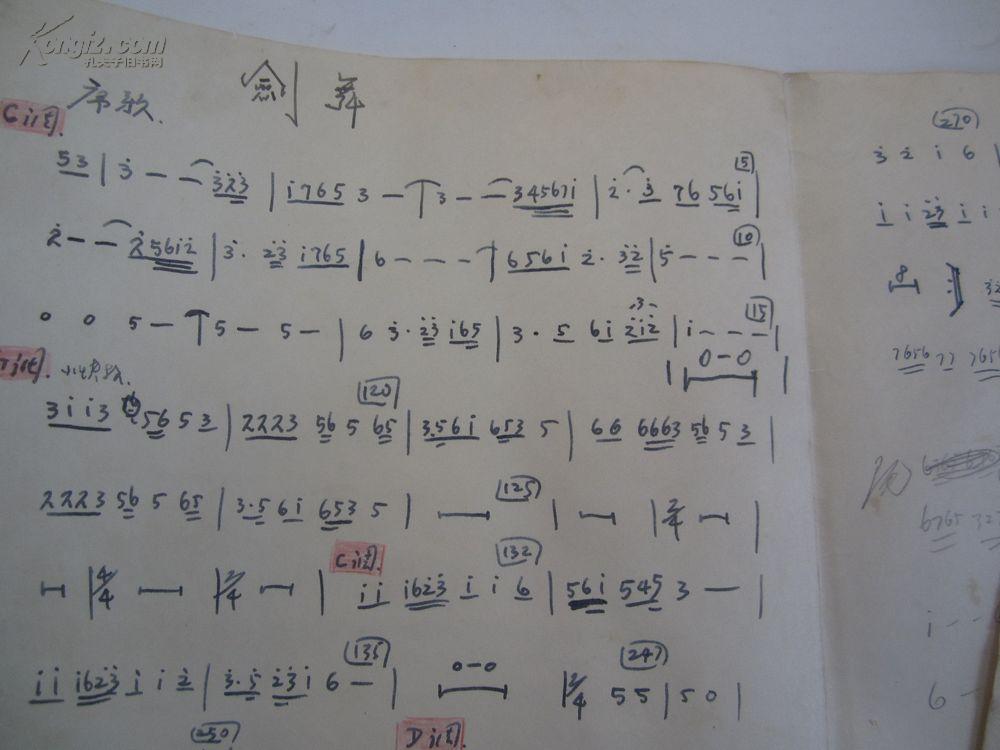 Kongfz.com
孔夫子旧书网
序歌. 剑舞
C调.
53 | 3 - - 323 | i765 3 - | 3 - - 34567i | 2 · 3 76 56i | (5)
2 - - 256i2 | 3 · 23 i765 | 6 - - - | 656i 2 · 32 | 5 - - - | (10)
0 0 5 - | 5 - 5 - | 6 3 · 23 i65 | 3 · 5 6i 2i2 | i - - - | (15)
| 0-0 |
3ii3 565 3 | 2223 56 5 65 | 3.56i 653 5 | 66 6663 56 5 3 | (120)
2223 56 5 65 | 3·5 6i 653 5 | (125) | | 2/4 |
| 4/4 | 2/4 | C调. ii i623 i i 6 | 56i 545 3 - | (132)
ii i623 i i 2 | 3·5 23i 6 - | (135) 0-0 | 2/4 55 | 50 | (247)
(250) D调.
(270)
3 2 i 6 |
i i 23 i i
8
7656 77 765
6765 32
i - -
6 -